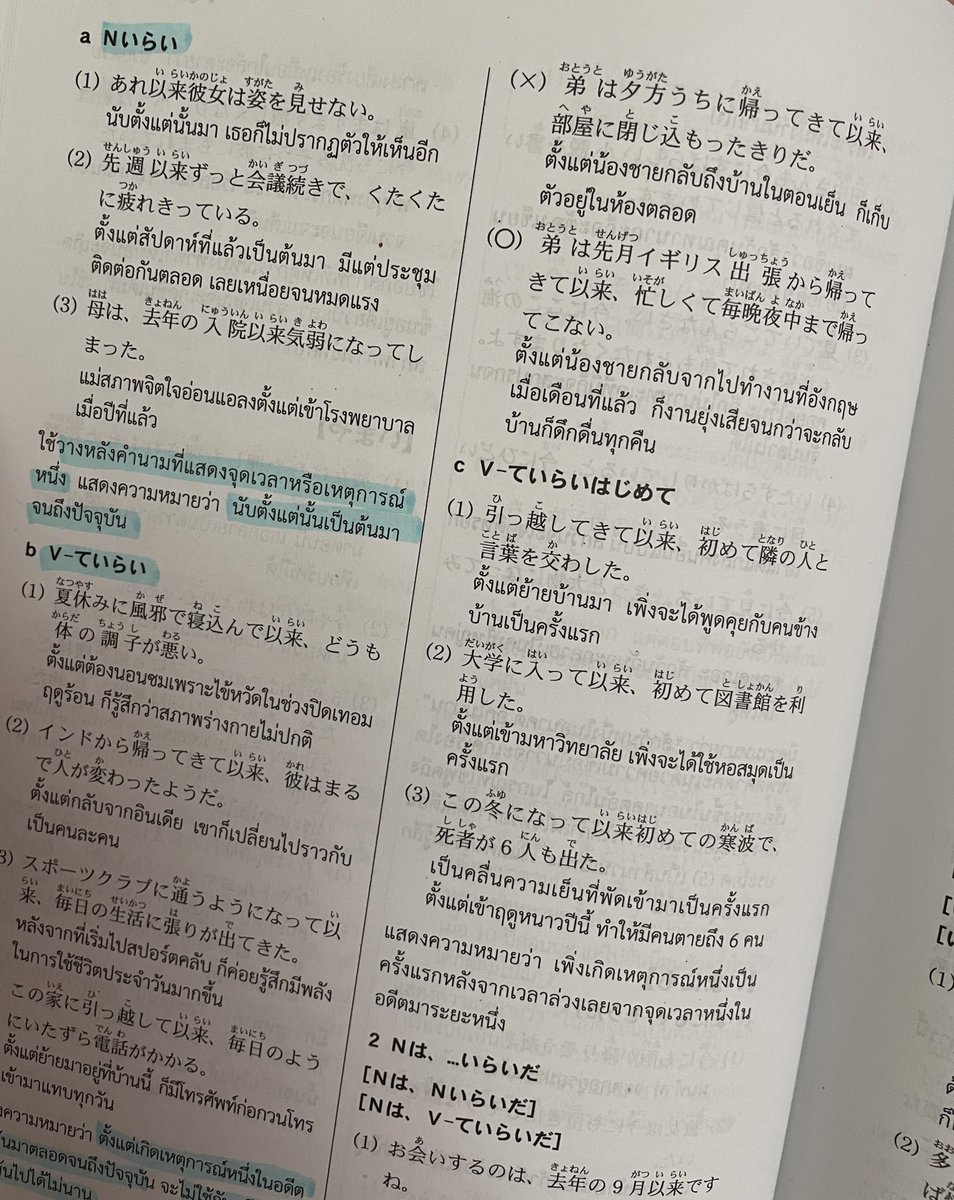 a Nいらい
(1) あれ以来彼女は姿を見せない。
นับตั้งแต่นั้นมา เธอก็ไม่ปรากฏตัวให้เห็นอีก
(2) 先週以来ずっと会議続きで、くたくた
に疲れきっている。
ตั้งแต่สัปดาห์ที่แล้วเป็นต้นมา มีแต่ประชุม
ติดต่อกันตลอด เลยเหนื่อยจนหมดแรง
(3) 母は、去年の入院以来気弱になってし
まった。
แม่สภาพจิตใจอ่อนแอลงตั้งแต่เข้าโรงพยาบาล
เมื่อปีที่แล้ว
ใช้วางหลังคำนามที่แสดงจุดเวลาหรือเหตุการณ์
หนึ่ง แสดงความหมายว่า นับตั้งแต่นั้นเป็นต้นมา
จนถึงปัจจุบัน
b V-ていらい
(1) 夏休みに風邪で寝込んで以来、どうも
体の調子が悪い。
ตั้งแต่ต้องนอนซมเพราะไข้หวัดในช่วงปิดเทอม
ฤดูร้อน ก็รู้สึกว่าสภาพร่างกายไม่ปกติ
(2) インドから帰ってきて以来、彼はまる
で人が変わったようだ。
ตั้งแต่กลับจากอินเดีย เขาก็เปลี่ยนไปราวกับ
เป็นคนละคน
3) スポーツクラブに通うようになって以
来、毎日の生活に張りが出てきた。
หลังจากที่เริ่มไปสปอร์ตคลับ ก็ค่อยรู้สึกมีพลัง
ในการใช้ชีวิตประจำวันมากขึ้น
この家に引っ越して以来、毎日のよう
にいたずら電話がかかる。
ตั้งแต่ย้ายมาอยู่ที่บ้านนี้ ก็มีโทรศัพท์ก่อกวนโทร
เข้ามาแทบทุกวัน
งความหมายว่า ตั้งแต่เกิดเหตุการณ์หนึ่งในอดีต
นมาตลอดจนถึงปัจจุบัน จะไม่ใช้กับ
นไปได้ไม่นาน
(×) 弟は夕方うちに帰ってきて以来、
部屋に閉じ込もったきりだ。
ตั้งแต่น้องชายกลับถึงบ้านในตอนเย็น ก็เก็บ
ตัวอยู่ในห้องตลอด
(○) 弟は先月イギリス出張から帰って
きて以来、忙しくて毎晩夜中まで帰っ
てこない。
ตั้งแต่น้องชายกลับจากไปทำงานที่อังกฤษ
เมื่อเดือนที่แล้ว ก็งานยุ่งเสียจนกว่าจะกลับ
บ้านก็ดึกดื่นทุกคืน
c V-ていらいはじめて
(1) 引っ越してきて以来、初めて隣の人と
言葉を交わした。
ตั้งแต่ย้ายบ้านมา เพิ่งจะได้พูดคุยกับคนข้าง
บ้านเป็นครั้งแรก
(2) 大学に入って以来、初めて図書館を利
用した。
ตั้งแต่เข้ามหาวิทยาลัย เพิ่งจะได้ใช้หอสมุดเป็น
ครั้งแรก
(3) この冬になって以来初めての寒波で、
死者が6人も出た。
เป็นคลื่นความเย็นที่พัดเข้ามาเป็นครั้งแรก
ตั้งแต่เข้าฤดูหนาวปีนี้ ทำให้มีคนตายถึง 6 คน
แสดงความหมายว่า เพิ่งเกิดเหตุการณ์หนึ่งเป็น
ครั้งแรกหลังจากเวลาล่วงเลยจากจุดเวลาหนึ่งใน
อดีตมาระยะหนึ่ง
2 Nは、…いらいだ
[Nは、Nいらいだ]
[Nは、V-ていらいだ]
(1) お会いするのは、去年の9月以来です
ね。
(1)
(2) 多